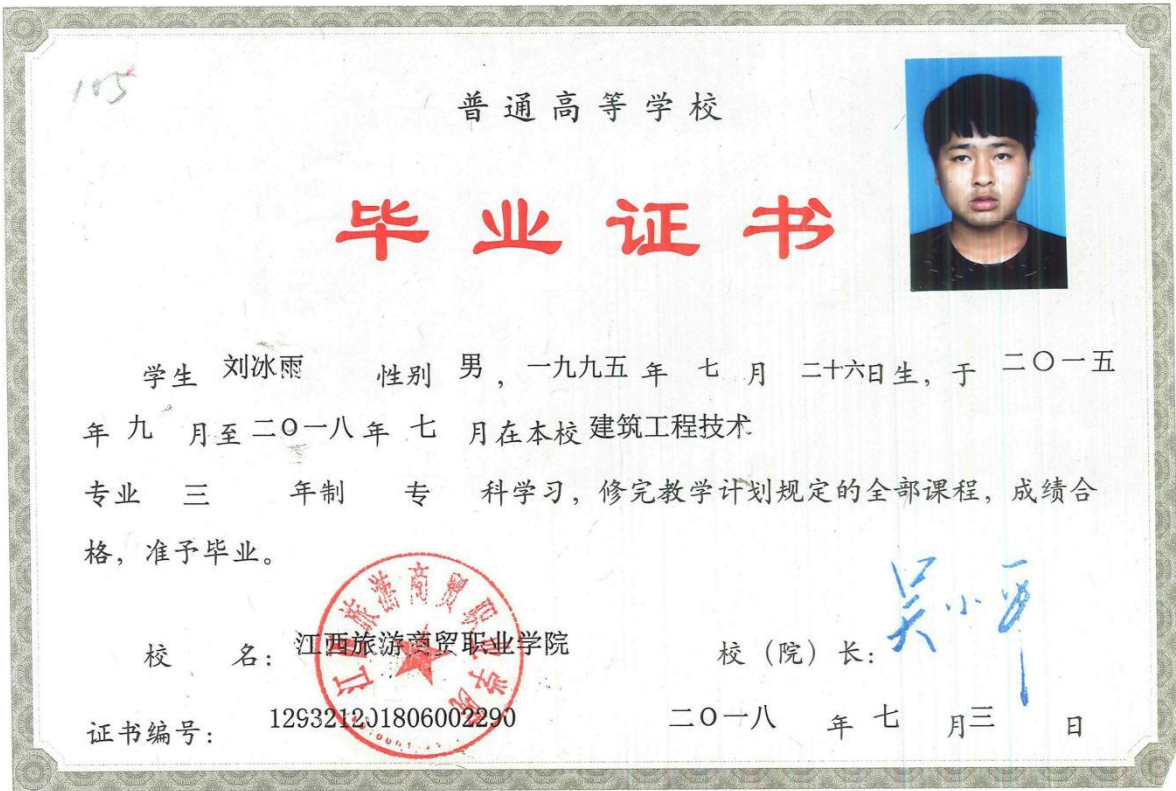 105
普通高等学校
毕业证书
学生 刘冰雨 性别 男 ，一九九五 年 七 月 二十六日生，于 二〇一五
年 九 月至 二〇一八 年 七 月在本校 建筑工程技术
专业 三 年制 专 科学习，修完教学计划规定的全部课程，成绩合
格，准予毕业。
江西旅游商贸职业学院
校 名：江西旅游商贸职业学院 校（院）长：吴小平
证书编号：129321201806002290 二〇一八 年 七 月三 日